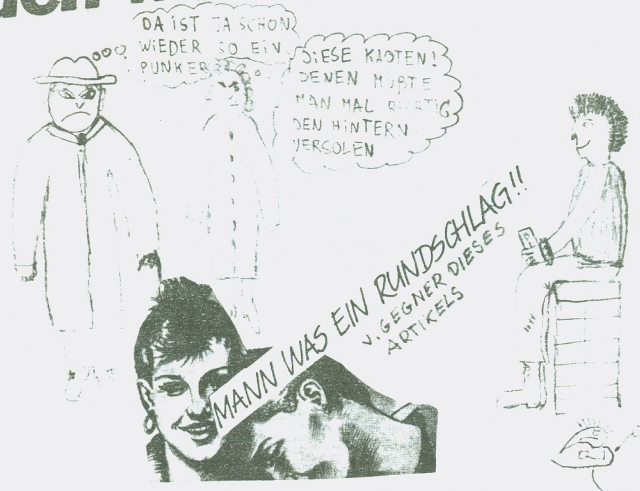 DA IST JA SCHON
WIEDER SO EIN
PUNKER
DIESE KAOTEN!
DENEN MÜßTE
MAN MAL RICHTIG
DEN HINTERN
VERSOLEN
MANN WAS EIN RUNDSCHLAG!!
V. GEGNER DIESES
ARTIKELS